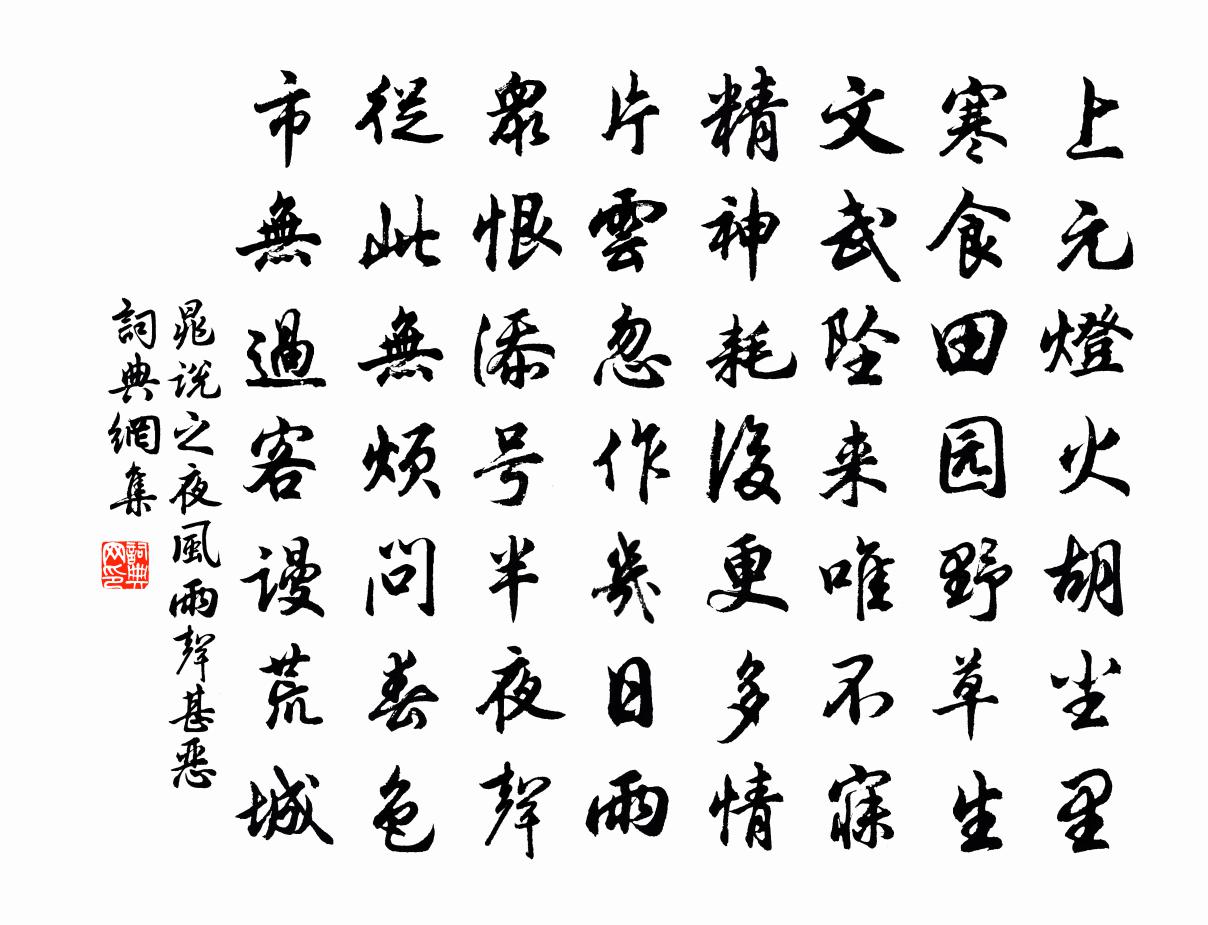 上元燈火胡尘里
寒食田园野草生
文武坠来唯不寐
精神耗後更多情
片雲忽作幾日雨
衆恨添号半夜聲
從此無烦问春色
市無過客谩荒城
晁说之夜風雨聲甚恶
詞典網集
詞典网印